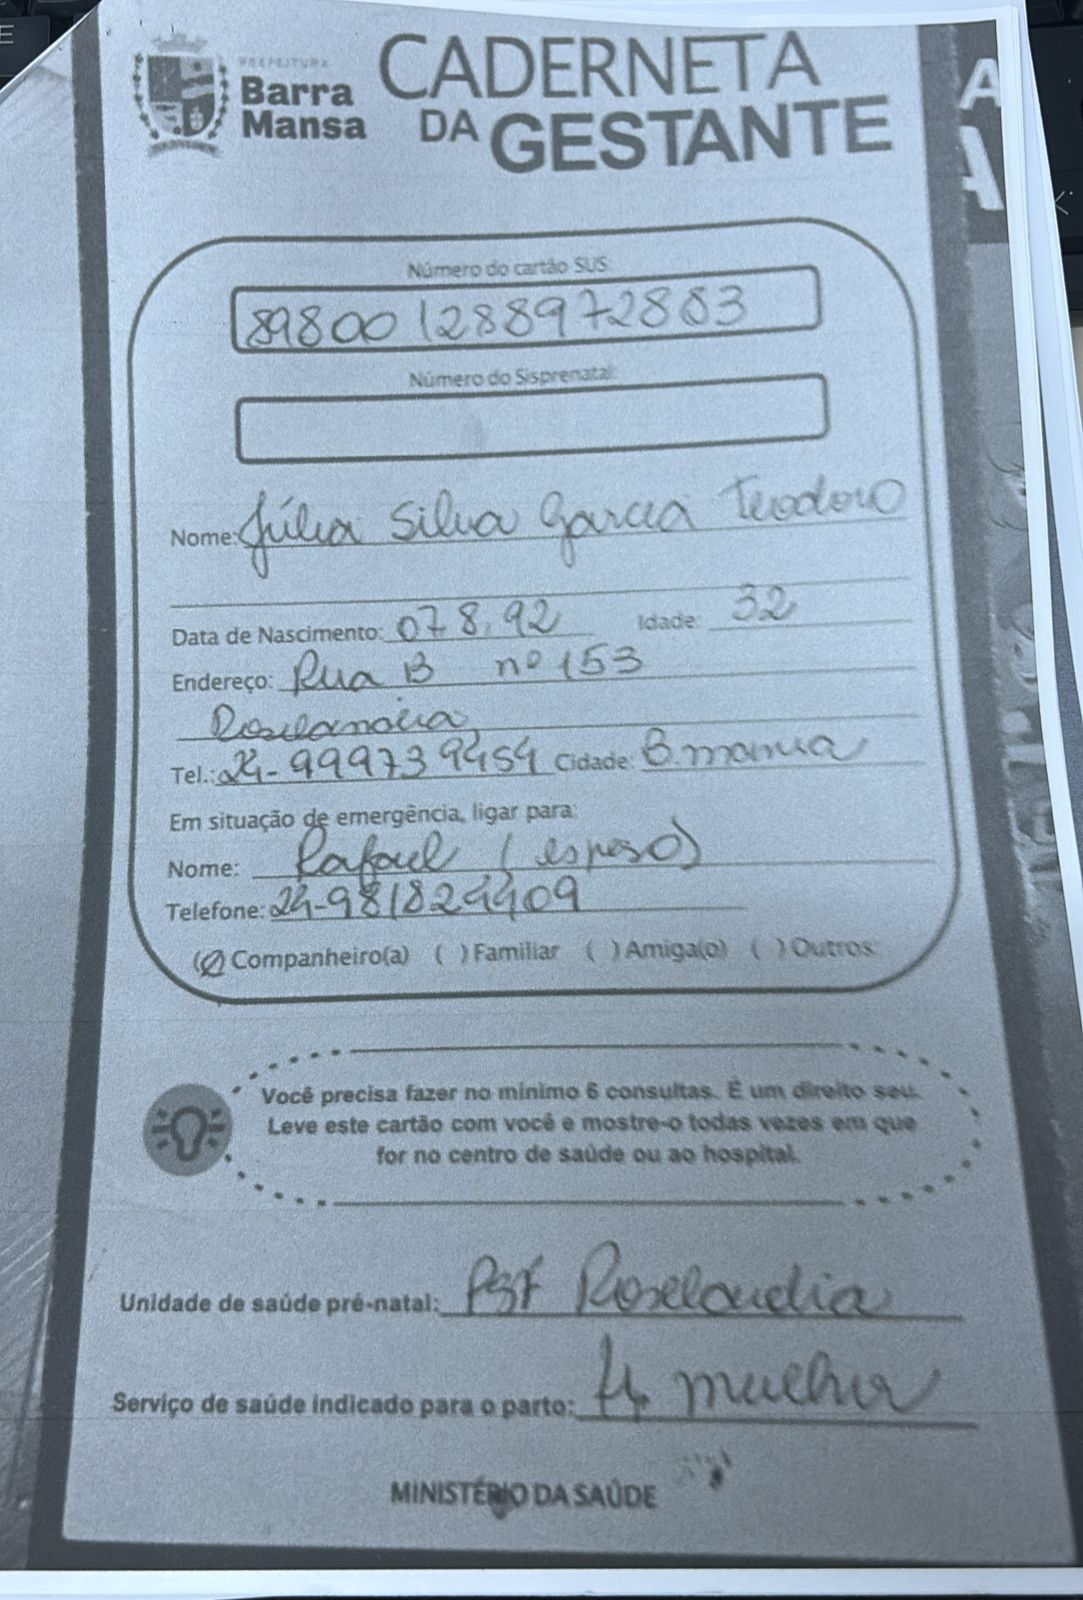 PREFEITURA
Barra
Mansa
CADERNETA
DA GESTANTE
Número do cartão SUS:
898001288972883
Número do Sisprenatal:
Nome: Júlia Silva Garcia Teodoro
Data de Nascimento: 07 8.92 Idade: 32
Endereço: Rua B nº 153
Roselandia
Tel.: 24-999739454 Cidade: B. mansa
Em situação de emergência, ligar para:
Nome: Rafael (esposo)
Telefone: 24-981824409
(Ø) Companheiro(a) ( ) Familiar ( ) Amiga(o) ( ) Outros:
Você precisa fazer no mínimo 6 consultas. É um direito seu.
Leve este cartão com você e mostre-o todas vezes em que
for no centro de saúde ou ao hospital.
Unidade de saúde pré-natal: PSF Roselandia
Serviço de saúde indicado para o parto: H. mulher
MINISTÉRIO DA SAÚDE